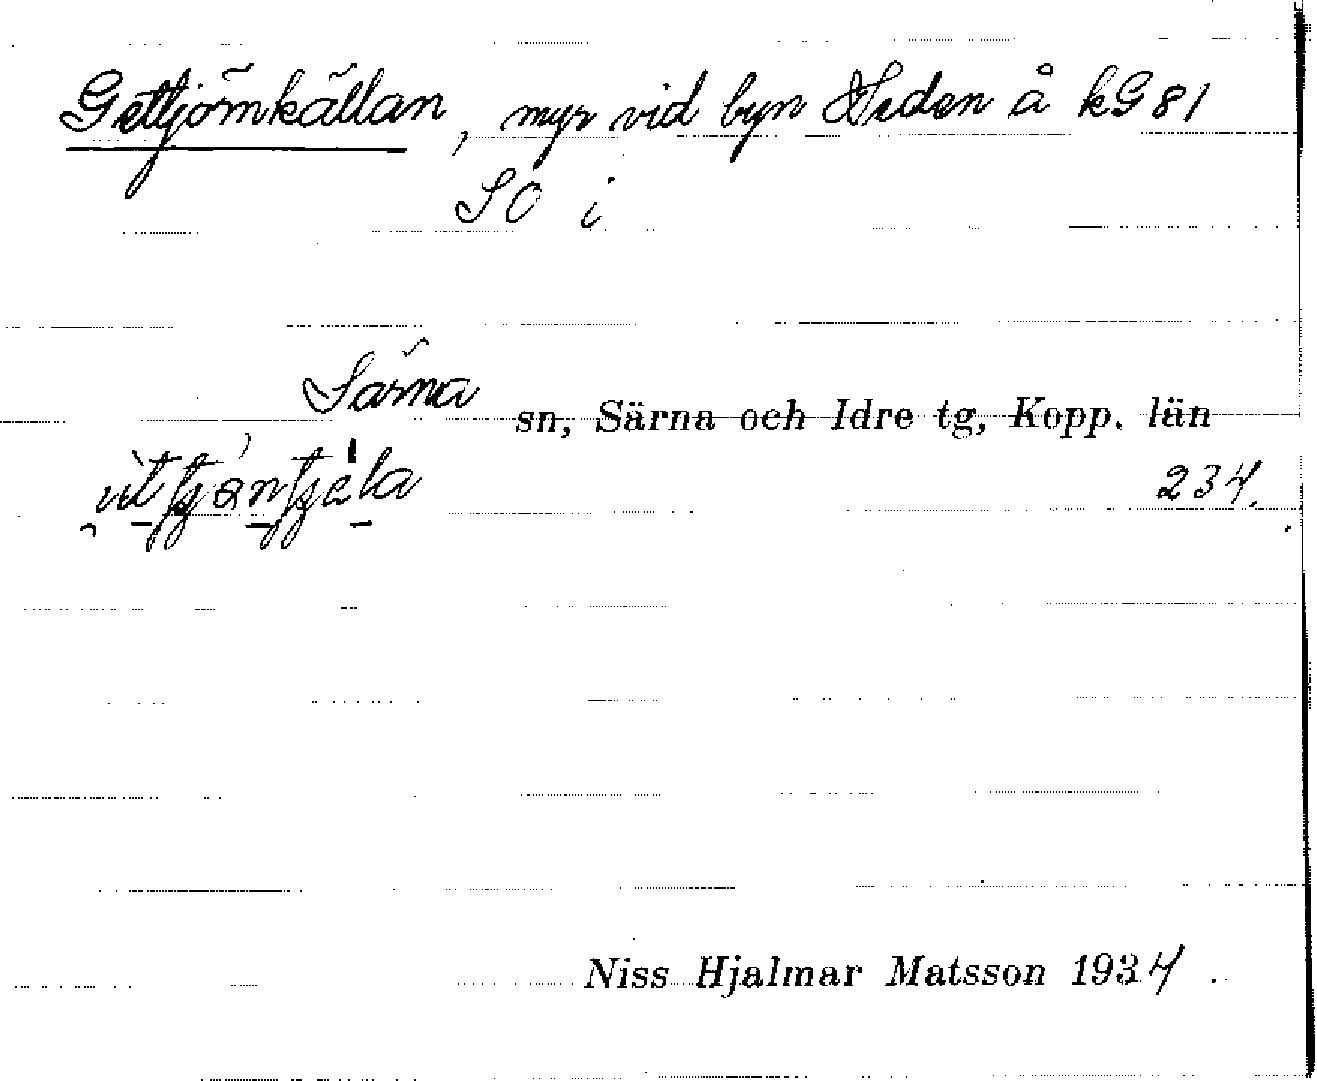 Gettjärnkällan, myr vid byn Heden å kG 81
SO i
Särna sn, Särna och Idre tg, Kopp. län
234.
Niss Hjalmar Matsson 1934.